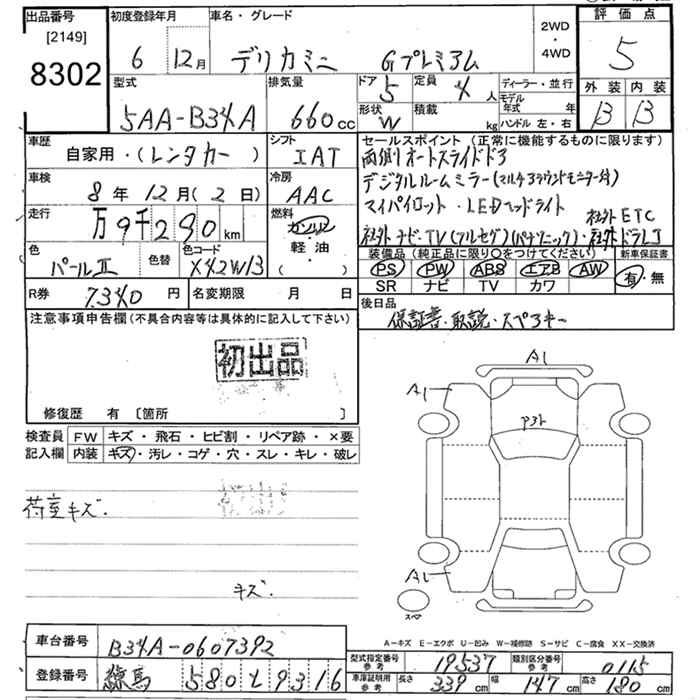 出品番号
[2149]
8302
初度登録年月
6 12月
車名・グレード
デリカミニ Gプレミアム
2WD
・
4WD
評価点
5
外装 内装
B B
型式
5AA-B34A
排気量
660cc
ドア
5
定員
4人
形状
W
積載
kg
ディーラー・並行
モデル年式 年
ハンドル 左・右
車歴
自家用・(レンタカー)
シフト
IAT
車検
8年12月(2日)
冷房
AAC
走行
万9千280km
燃料
ガソリン
軽・油
( )
色
パールⅡ
色替
色コード
X42W13
R券 7340円
名変期限 月 日
セールスポイント(正常に機能するものに限ります)
両側オートスライドドア
デジタルルームミラー(マルチアラウンドモニター付)
マイパイロット・LEDヘッドライト
社外ETC
社外ナビ・TV(フルセグ)(パナソニック)・社外ドラレコ
装備品(純正品に限り○をつけてください)
PS PW ABS エアB AW
SR ナビ TV カワ
新車保証書
有・無
後日品
保証書・取説・スペアキー
注意事項申告欄(不具合内容等は具体的に記入して下さい)
初出品
修復歴 有 〔箇所 〕
検査員
記入欄
FW キズ・飛石・ヒビ割・リペア跡・×要
内装 キズ・汚レ・コゲ・穴・スレ・キレ・破レ
荷室キズ.
キズ.
A1
A1
アスト
A1
スペア
A-キズ E-エクボ U-凹み W-補修跡 S-サビ C-腐食 XX-交換済
車台番号
B34A-0607392
登録番号
練馬 580 モ 9316
型式指定番号
参考
19537
類別区分番号
参考
0115
車庫証明用
参考
長さ 339cm 幅 147cm 高さ 180cm